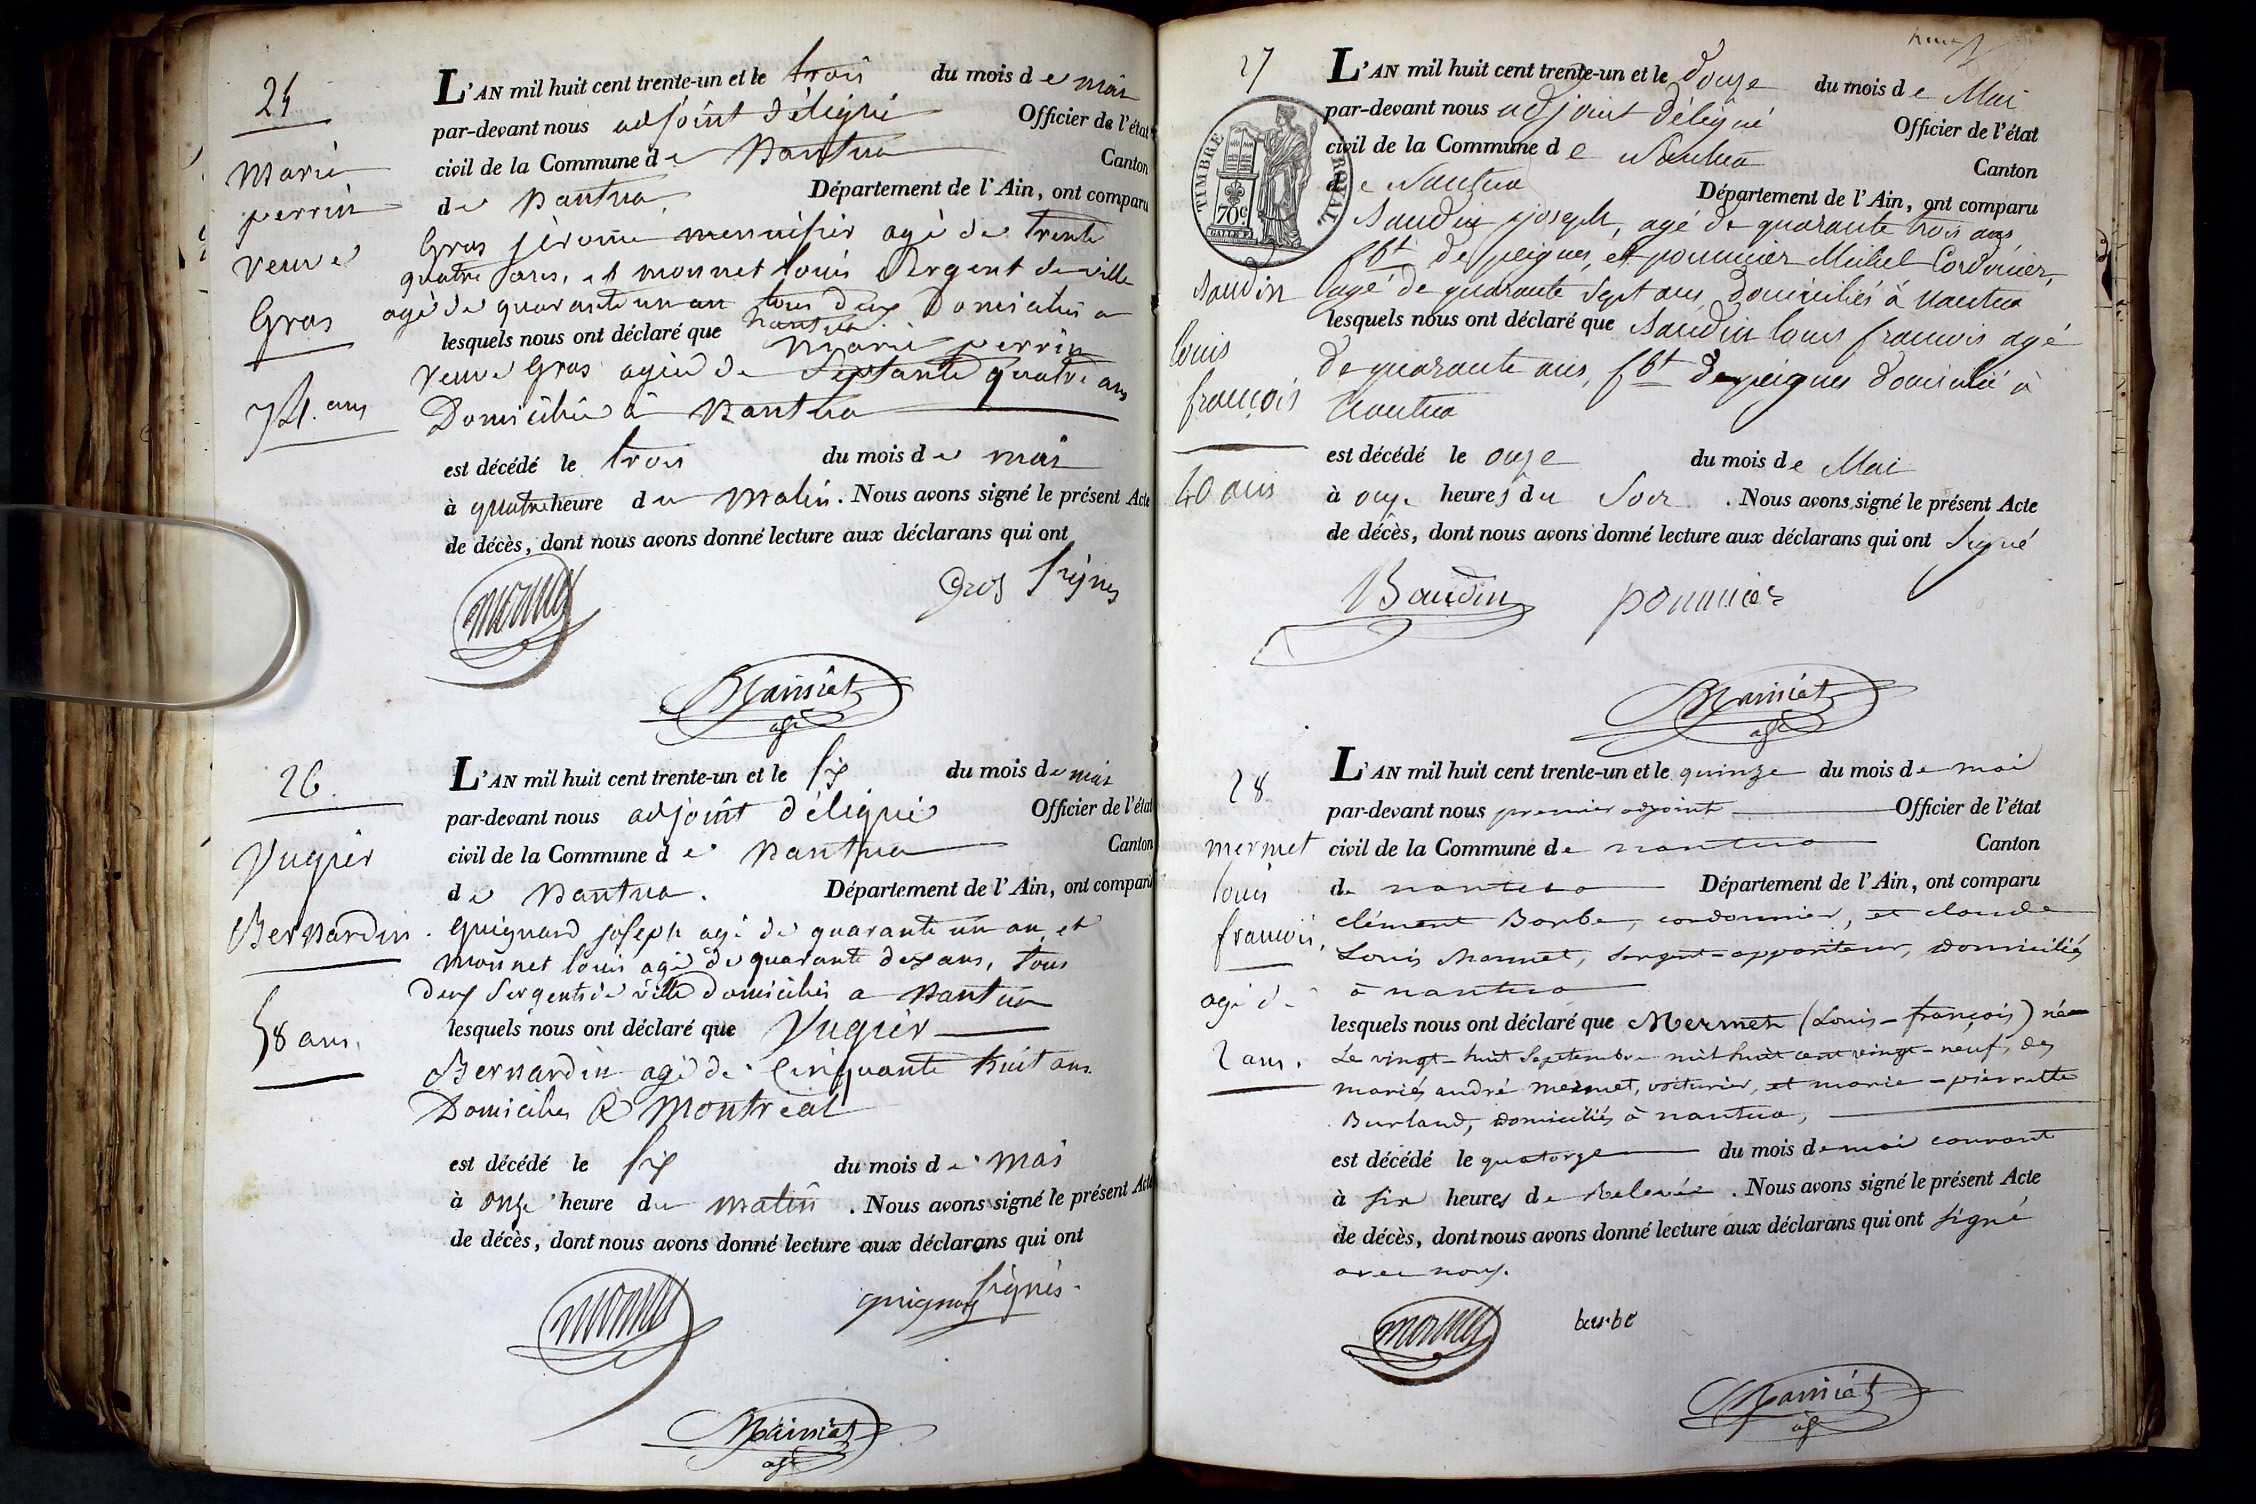 25
Marie
perrin
veuve
Gras
74. ans
L'AN mil huit cent trente-un et le trois du mois de mai
par-devant nous adjoint déligué Officier de l'état
civil de la Commune de Nantua Canton
de Nantua Département de l'Ain, ont comparu
Gras jérome menuisier agé de trente
quatre ans, et monnet louis sergent de ville
agé de quarante un an tous deux Domiciliés a
nantua.
lesquels nous ont déclaré que Marie perrin
veuve Gras agée de Septante quatre ans
Domiciliée à Nantua
est décédé le trois du mois de mai
à quatre heure du Matin. Nous avons signé le présent Acte
de décès, dont nous avons donné lecture aux déclarans qui ont
signés
Gros
26.
Vuguer
Bernardin.
58 ans.
L'AN mil huit cent trente-un et le six du mois de mai
par-devant nous adjoint déligué Officier de l'état
civil de la Commune de Nantua Canton
de Nantua. Département de l'Ain, ont comparu
Guignard joseph agé de quarante un an, et
Monnet louis agé de quarante dex ans, tous
deux Sergents de ville domiciliés a Nantua
lesquels nous ont déclaré que Vuguer
Bernardin agé de Cinquante huit ans
Domicilié à Montréal
est décédé le six du mois de mai
à onze heure du matin. Nous avons signé le présent Acte
de décès, dont nous avons donné lecture aux déclarans qui ont
signés.
27
TIMBRE ROYAL
70c
Baudin
louis
françois
40 ans
L'AN mil huit cent trente-un et le douze du mois de Mai
par-devant nous adjoint délégué Officier de l'état
civil de la Commune de Nantua Canton
de Nantua Département de l'Ain, ont comparu
Baudin joseph, agé de quarante trois ans
fbt de peignes, et pommier Michel Cordonier,
agé de quarante sept ans, Domiciliés à Nantua
lesquels nous ont déclaré que Baudin louis francois agé
de quarante ans, fbt de peignes domicilié à
Nantua
est décédé le onze du mois de Mai
à onze heures du Soir. Nous avons signé le présent Acte
de décès, dont nous avons donné lecture aux déclarans qui ont Signé
Baudin pommier
28
mermet
louis
francois,
agé de
2 ans.
L'AN mil huit cent trente-un et le quinze du mois de mai
par-devant nous premier adjoint Officier de l'état
civil de la Commune de nantua Canton
de nantua Département de l'Ain, ont comparu
clément Barbe, cordonnier, et claude
Louis Monnet, sergent-appariteur, domiciliés
à nantua
lesquels nous ont déclaré que Mermet (Louis-françois) né
Le vingt-huit Septembre mil huit cent vingt-neuf, des
mariés andré mermet, voiturier, et marie-pierrette
Burland, domiciliés à nantua,
est décédé le quatorze du mois de mai courant
à six heures de Relevée. Nous avons signé le présent Acte
de décès, dont nous avons donné lecture aux déclarans qui ont signé
avec nous.
barbe